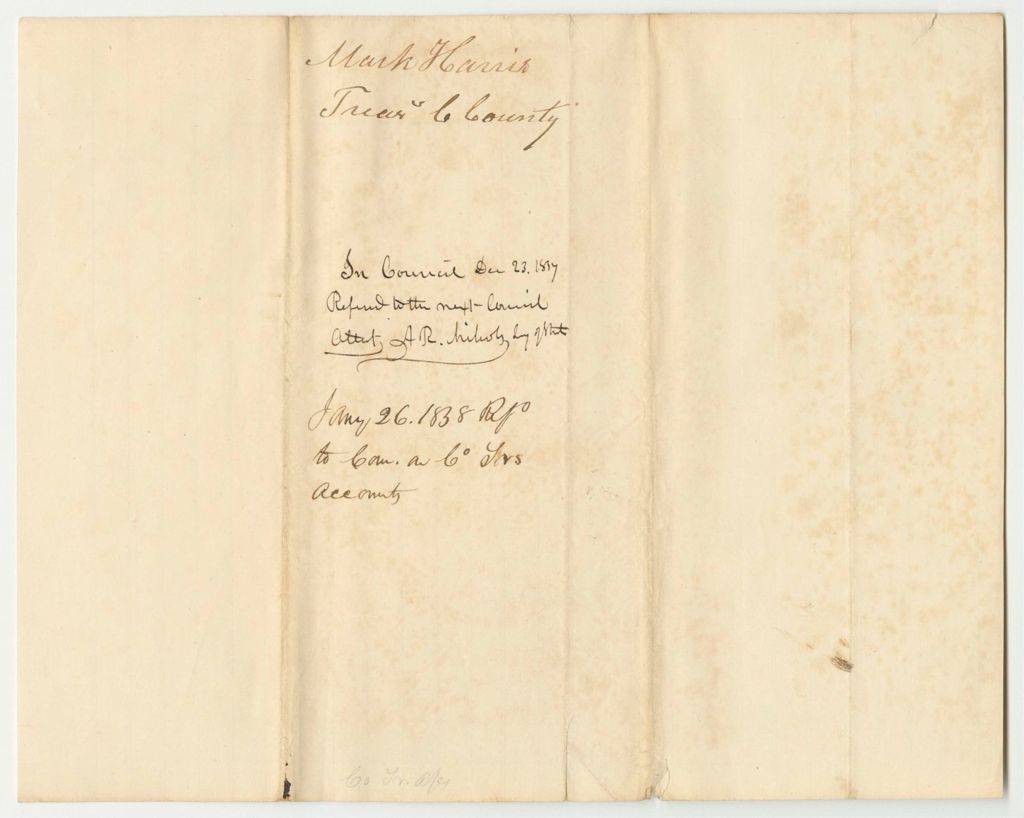 Mark Harris
Treasr C County
In Council Dec 23. 1837
Referred to the next Council
Attest, A R. Nichols Secy of State
Jany 26. 1838 Refd
to Com. on Co Trs
Accounts
Co Tr. a/cs